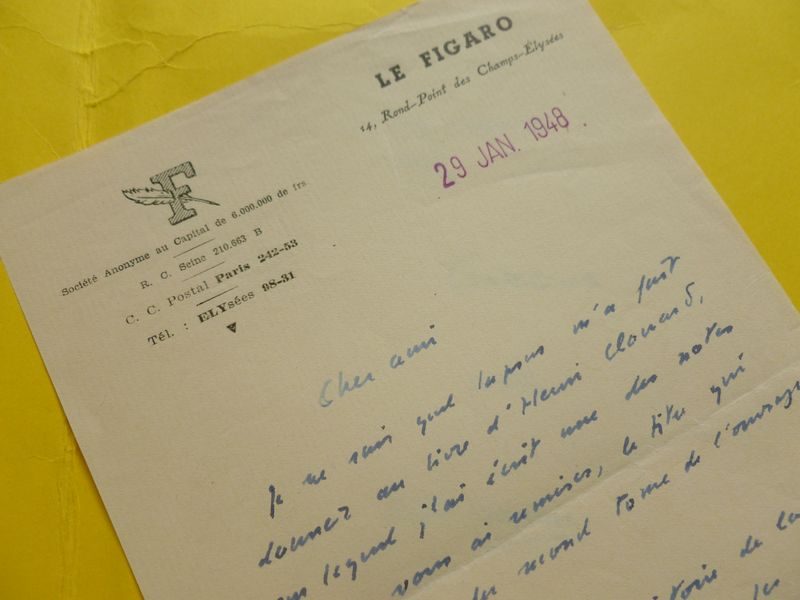 LE FIGARO
14, Rond-Point des Champs-Élysées
29 JAN. 1948
F
Société Anonyme au Capital de 6.000.000 de frs
R. C. Seine 210.663 B
C. C. Postal Paris 242-53
Tél. : ELYsées 98-31
Cher ami
Je ne sais quel lapsus m'a fait
donner au livre d'Henri Clouard,
lequel j'ai écrit une des notes
vous ai remises, le titre qui
du second tome de l'ouvrage
de la